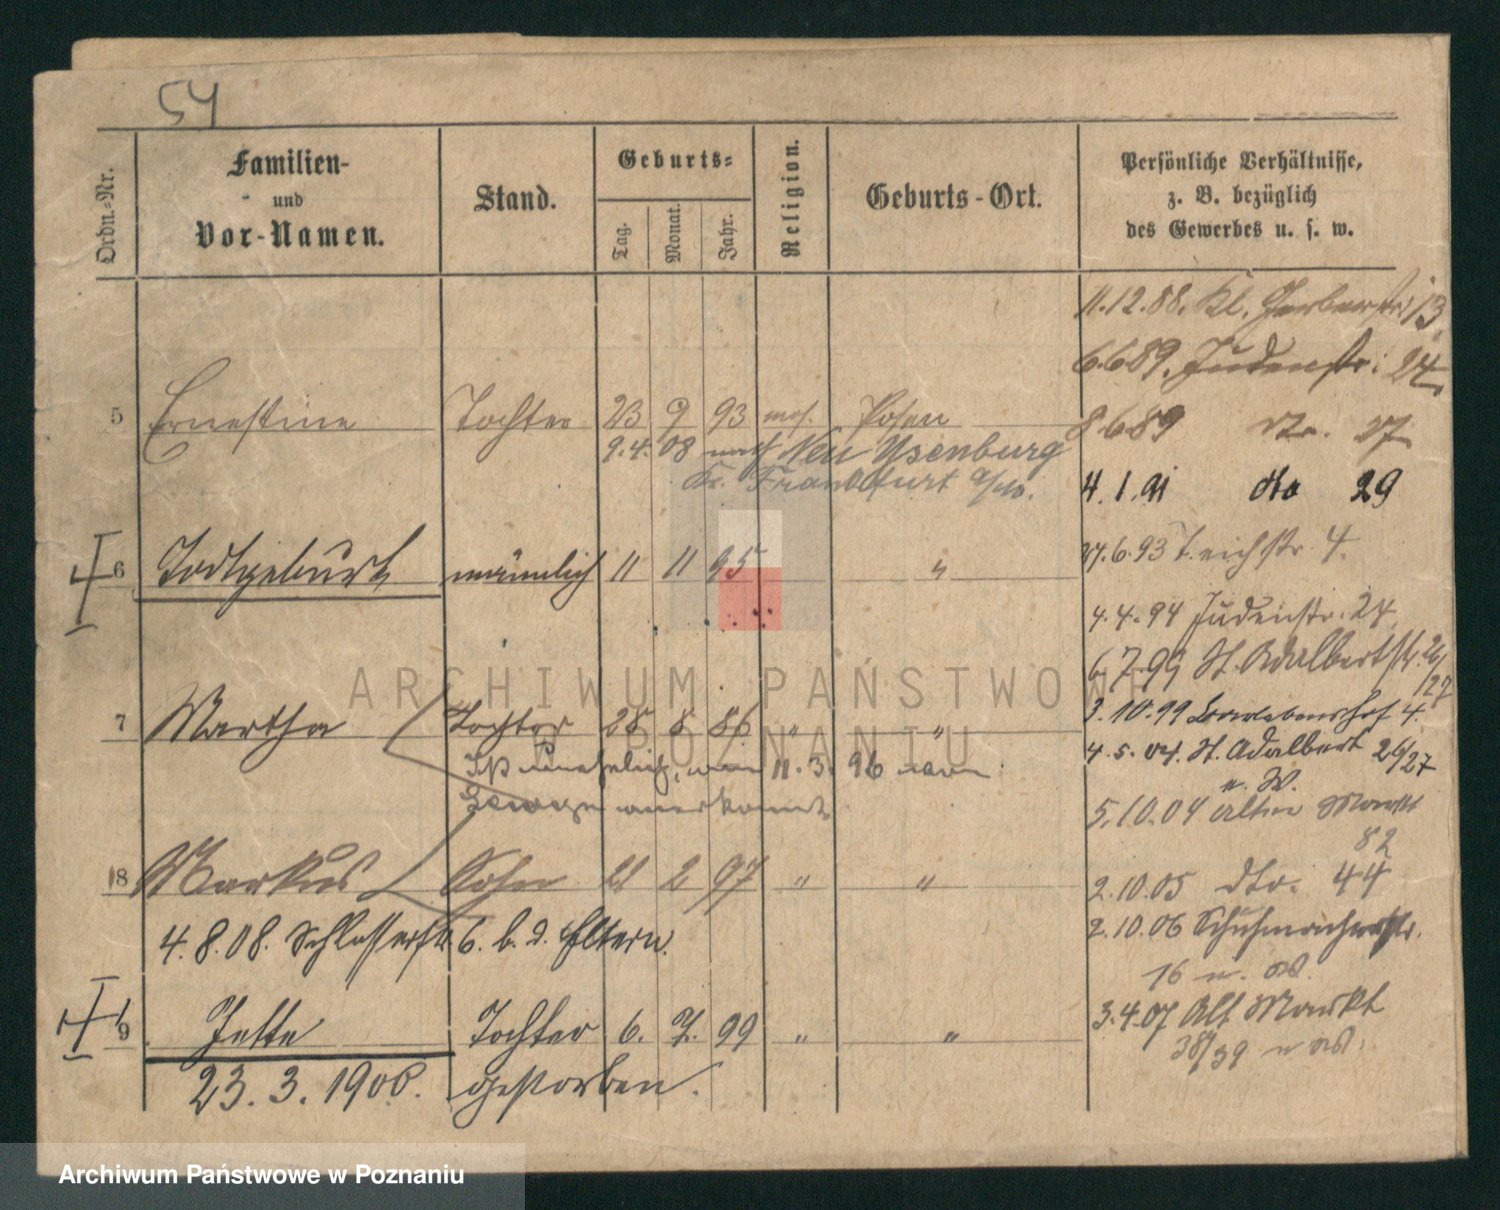 54
Ordn.-Nr.
Familien-
und
Vor-Namen.
Stand.
Geburts-
Tag.
Monat.
Jahr.
Religion.
Geburts-Ort.
Persönliche Verhältnisse,
z. B. bezüglich
des Gewerbes u. s. w.
11.12.88. Kl. Gerberstr. 13.
6.6.89. Judenstr. 24
5 Ernestine Tochter 23 9 93 mos. Posen
8.6.89 27
9.4.08 nach Neu Ysenburg
Kr. Frankfurt a/M.
4.1.91 dto 29
6 Todtgeburt männlich 11 11 95 "
27.6.93 Teichstr. 4.
4.4.94 Judenstr. 24
6.7.99 St. Adalbertstr. 26/27
3.10.99 4.
7 Martha Tochter 28 8 86 " "
Ist unehelich, 11.3.96 vom
anerkannt
4.5.04. St. Adalbert 26/27
u. W.
5.10.04 Alter Markt
82
8 Markus Sohn 21 2 97 " "
2.10.05 dto. 44
4.8.08. Schlosserstr. 6. b. d. Eltern.
2.10.06 Schuhmacherstr.
16 u.
9 Jette Tochter 6. 7. 99 " "
3.4.07 Alt Markt
38/39 u
23.3.1900. gestorben.
ARCHIWUM PAŃSTWOWE
W POZNANIU
Archiwum Państwowe w Poznaniu